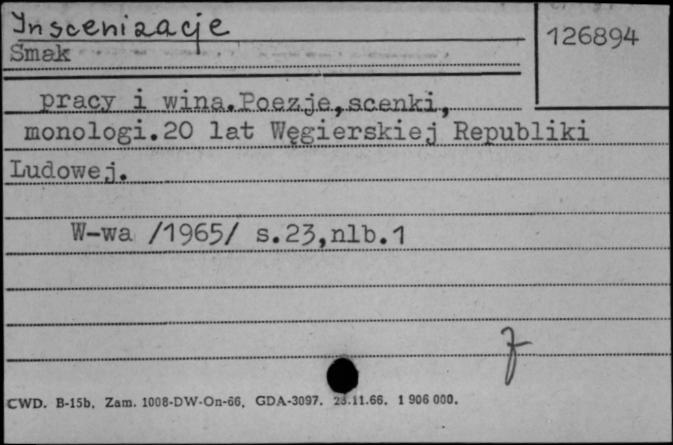 Inscenizacje
126894
Smak
pracy i wina.Poezje,scenki,
monologi.20 lat Węgierskiej Republiki
Ludowej.
W-wa /1965/ s.23,nlb.1
CWD. B-15b, Zam. 1008-DW-On-66, GDA-3097. 23.11.66. 1 906 000.